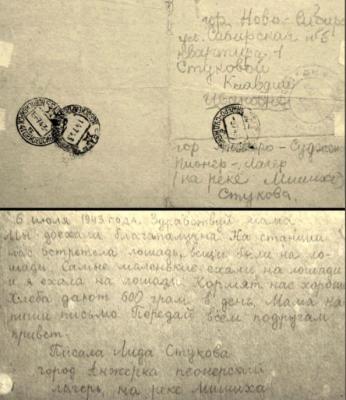 гор. Ново-Сибирс
ул. Сапёрская № 6
квартира 1
Стуковой
Клавдии
Ивановне
гор Анжеро-Суджен
Пионер-Лагер
(на реке Мишихе)
Стукова.
6 июля 1943 года. Здравствуй мама
Мы доехали благапалучна На станции
нас встретела лошадь, вещи везли на ло-
шади. Самые маленькие ехали на лошади
и я ехала на лошади. Кормят нас харашо
Хлеба дают 600 грам в день. Мама на
пиши письмо Передай всем подругам
привет.
Писала Лида Стукова
город Анжерка пеонерский
лагерь, на реке Мишиха